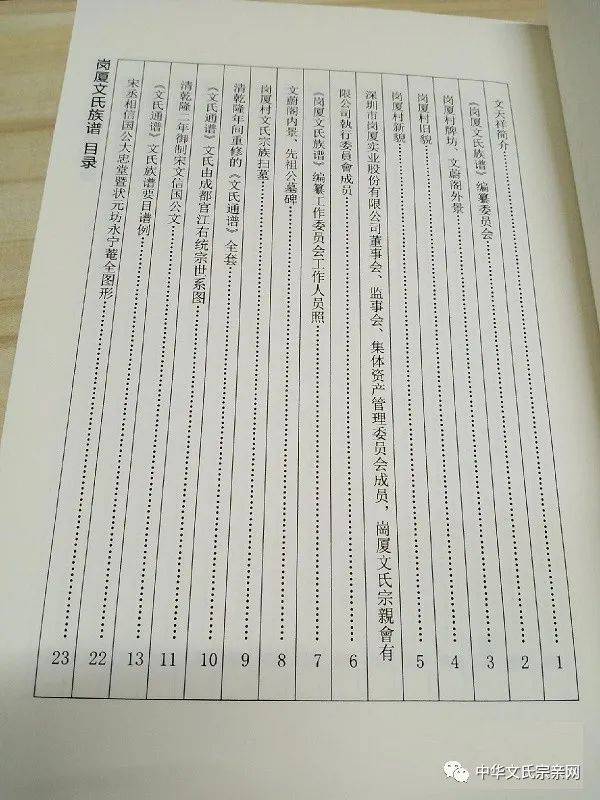 文天祥简介……1
《岗厦文氏族谱》编纂委员会……2
岗厦村牌坊、文蔚阁外景……3
岗厦村旧貌……4
岗厦村新貌……5
深圳市岗厦实业股份有限公司董事会、监事会、集体资产管理委员会成员、崗厦文氏宗親會有
限公司執行委員會成员……6
《岗厦文氏族谱》编纂工作委员会工作人员照……7
文蔚阁内景、先祖公墓碑……8
岗厦村文氏宗族扫墓……9
清乾隆年间重修的《文氏通谱》全套……10
《文氏通谱》文氏由成都官江右统宗世系图……11
清乾隆二年御制宋文信国公文……13
《文氏通谱》文氏族谱要目谱例……22
宋丞相信国公大忠堂暨状元坊永宁菴全图形……23
岗厦文氏族谱 目录
中华文氏宗亲网